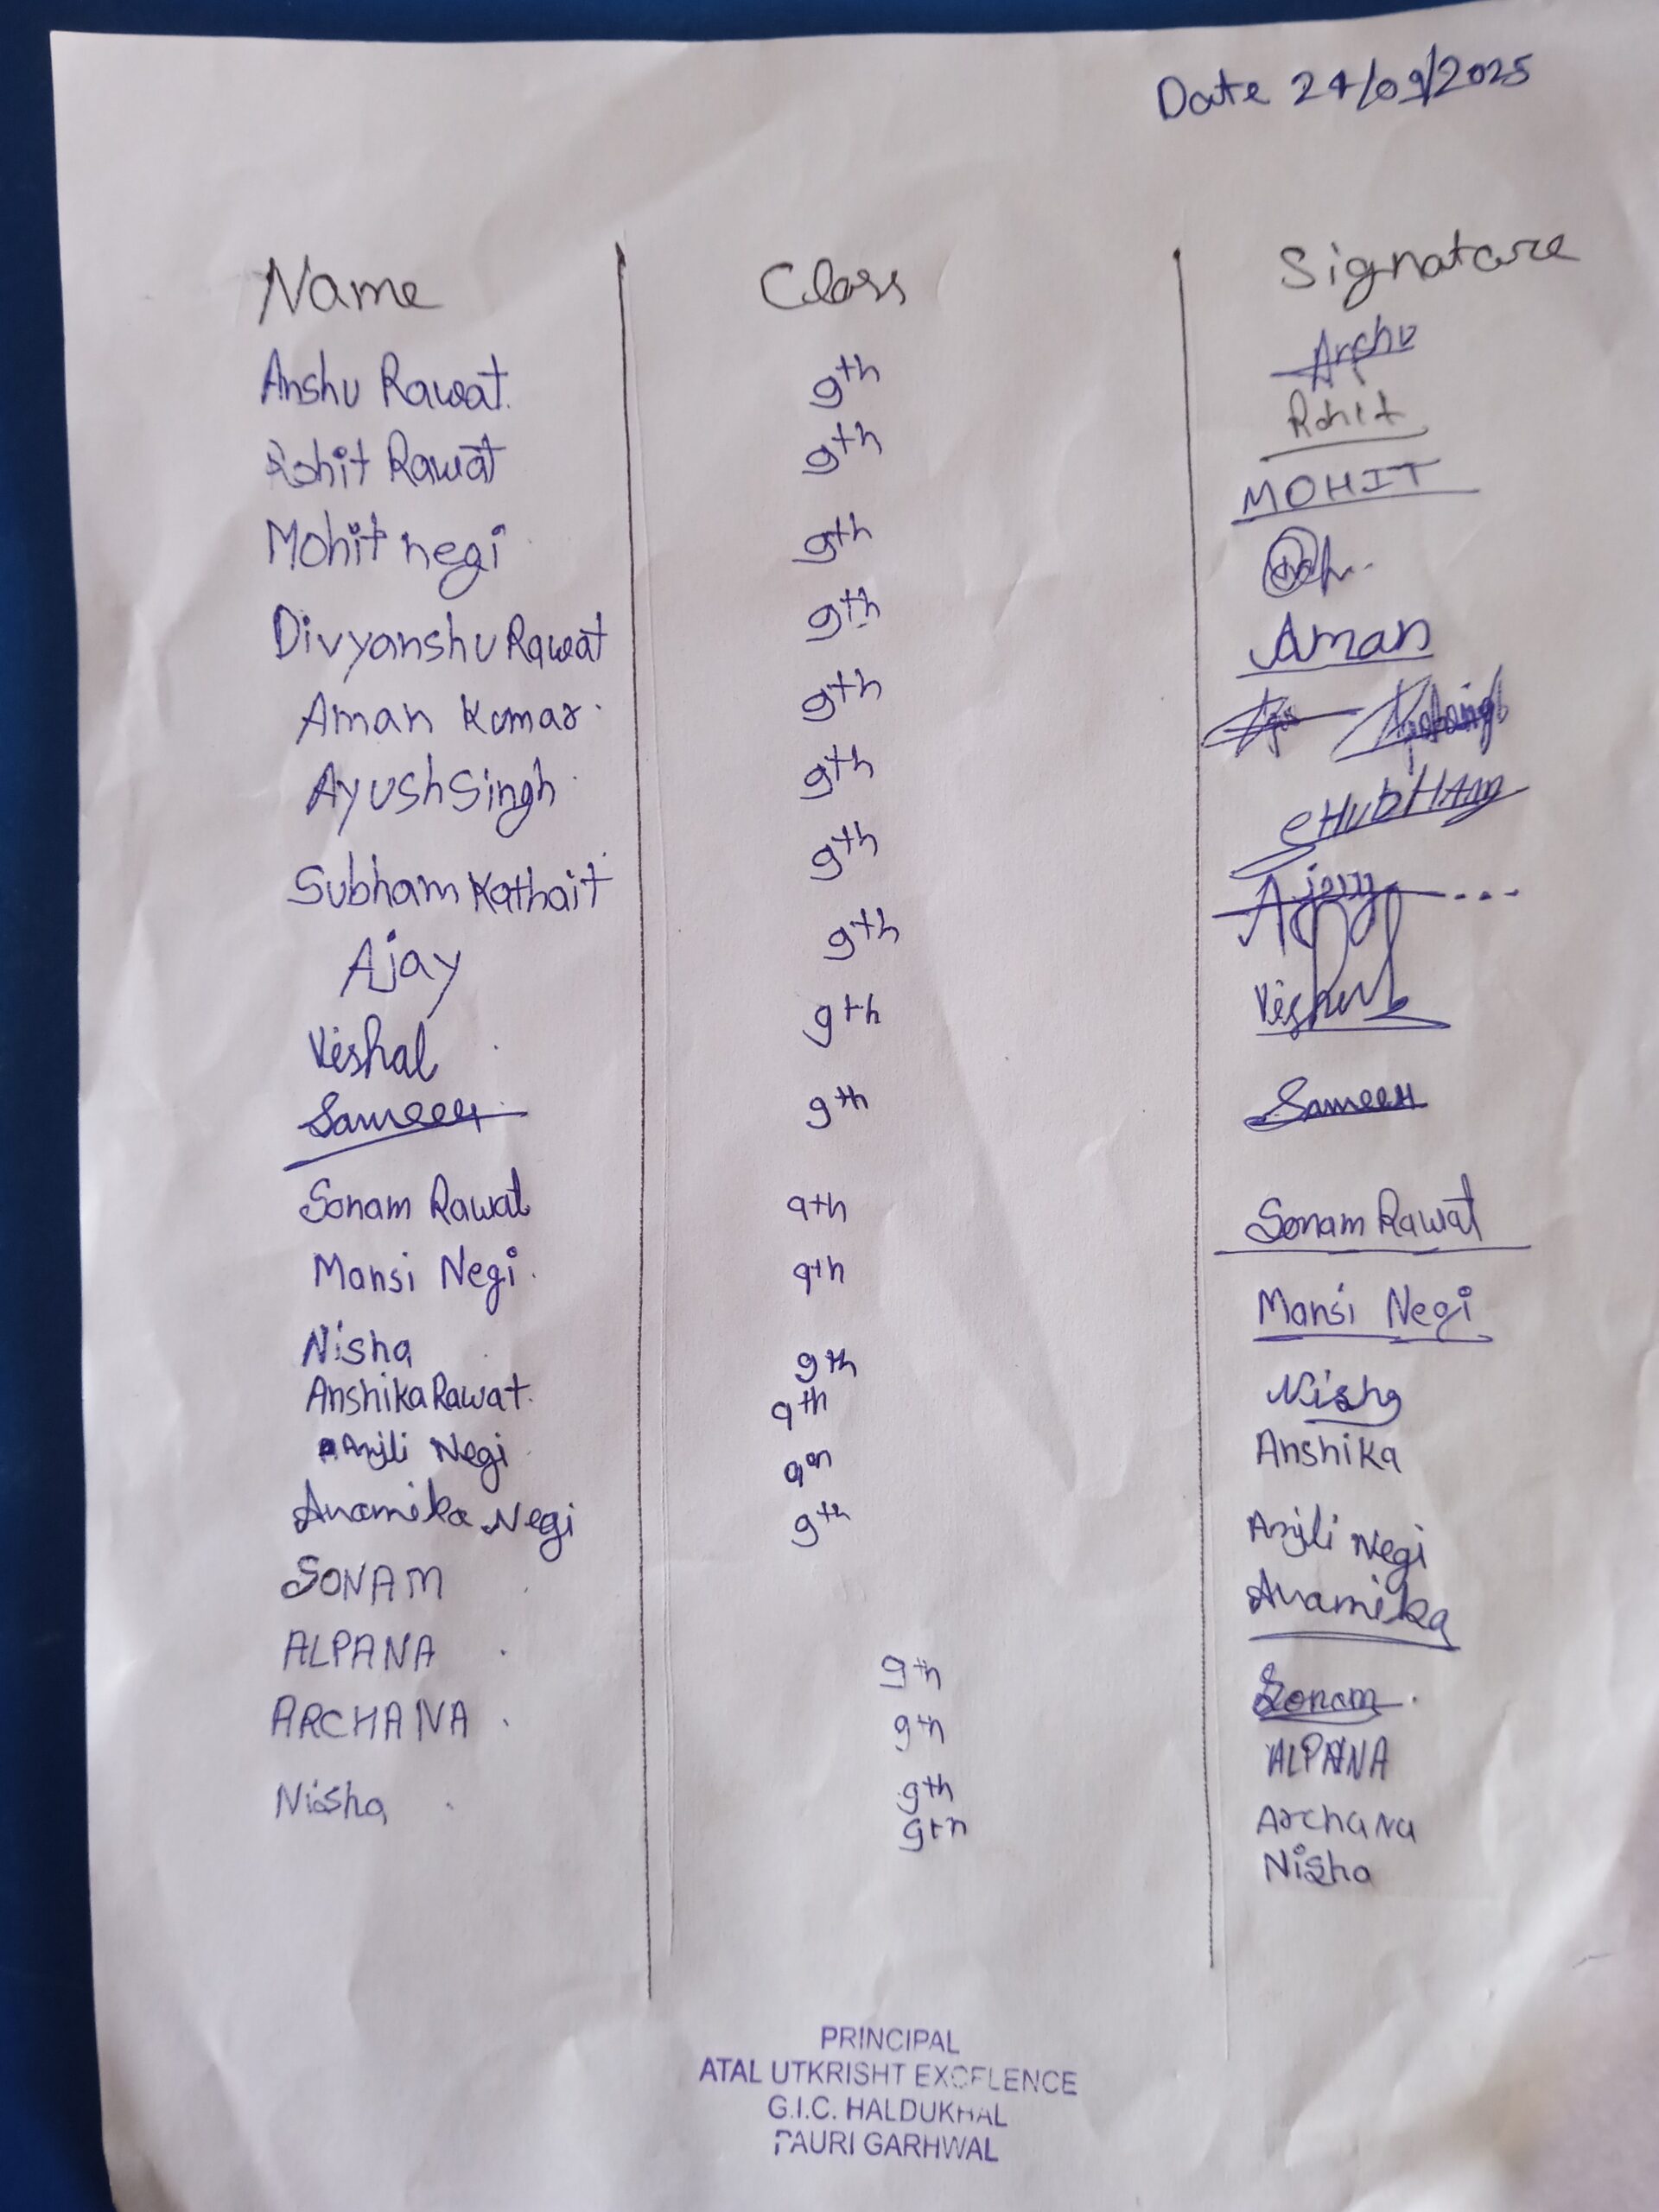 Date 24/09/2025
Name Class Signature
Anshu Rawat 9th Anshu
Rohit Rawat 9th Rohit
Mohit negi 9th MOHIT
Divyanshu Rawat 9th
Aman Kumar 9th Aman
Ayush Singh 9th
Subham Kathait 9th SHUbHAM
Ajay 9th Ajay
Vishal 9th Vishal
Sameer 9th Sameer
Sonam Rawat 9th Sonam Rawat
Mansi Negi 9th Mansi Negi
Nisha 9th Nisha
Anshika Rawat 9th Anshika
Anjli Negi 9th Anjli Negi
Anamika Negi 9th Anamika
SONAM 9th Sonam
ALPANA 9th ALPANA
ARCHANA 9th Archana
Nisha 9th Nisha
PRINCIPAL
ATAL UTKRISHT EXCELENCE
G.I.C. HALDUKHAL
PAURI GARHWAL